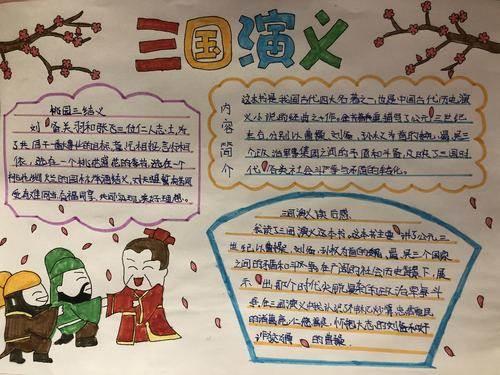 三国演义
桃园三结义
刘备关羽和张飞三位仁人志士,为
了共同干一番事业的目标,意气相投,言行相
依,选在一个桃花盛开的季节,选在一个
桃花绚烂的园林,举酒结义,对天盟誓,有苦同
受,有难同当,有福同享,共同实现人生的美好理想。
内容简介
这本书是我国古代四大名著之一,也是中国古代历史演
义小说的经典之作,
主
分别以曹操、刘备、孙权为首的魏、蜀、吴三
个政治军事集团之间的矛盾和斗争,反映了三国时
代各类社会斗争与矛盾的转化。
三国演义读后感
我读了三国演义这本书,这本书主要讲了公元三
世纪,以曹操、刘备、孙权为首的魏、蜀、吴三个国家
之间的矛盾和斗争,在广阔的社会历史背景下,展
示出那个时代尖锐复杂的政治军事斗
争,在三国演义中我认识了
的诸葛亮,
的曹操。